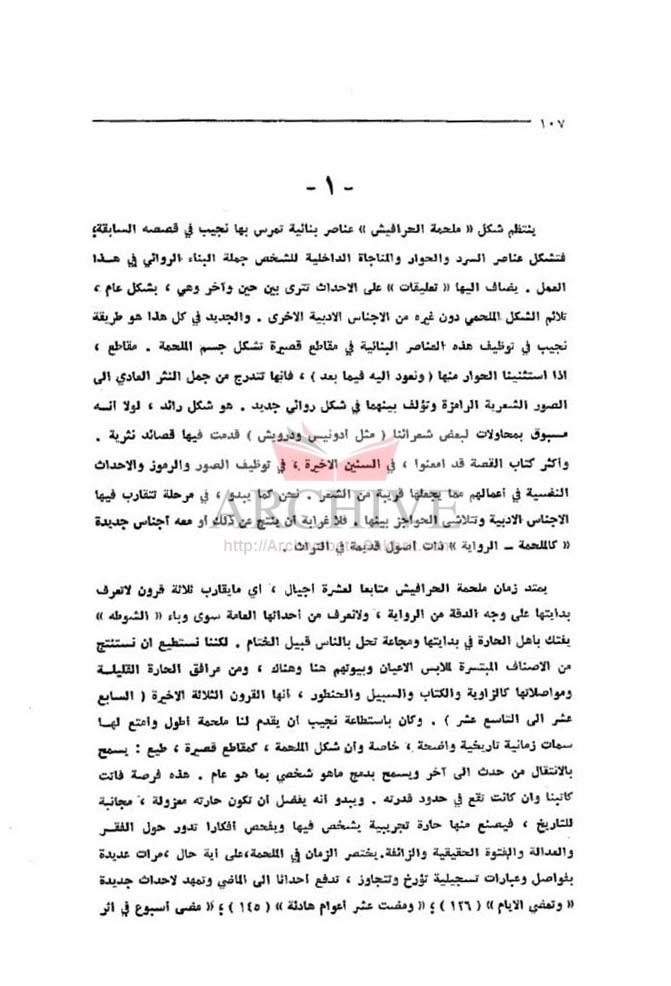 ١٠٧
- ١ -
ينتظم شكل « ملحمة الحرافيش » عناصر بنائية تمرس بها نجيب في قصصه السابقة؛
فتشكل عناصر السرد والحوار والمناجاة الداخلية للشخص جملة البناء الروائي في هذا
العمل . يضاف اليها « تعليقات » على الاحداث تترى بين حين وآخر وهي ، بشكل عام ،
تلائم الشكل الملحمي دون غيره من الاجناس الادبية الاخرى . والجديد في كل هذا هو طريقة
نجيب في توظيف هذه العناصر البنائية في مقاطع قصيرة تشكل جسم الملحمة . مقاطع ،
اذا استثنينا الحوار منها ( ونعود اليه فيما بعد ) ، فانها تتدرج من جمل النثر العادي الى
الصور الشعرية الرامزة وتؤلف بينهما في شكل روائي جديد . هو شكل رائد ، لولا أنه
مسبوق بمحاولات لبعض شعرائنا ( مثل أدونيس ودرويش ) قدمت فيها قصائد نثرية .
وأكثر كتاب القصة قد امعنوا ، في السنين الاخيرة ، في توظيف الصور والرموز والاحداث
النفسية في أعمالهم مما يجعلها قريبة من الشعر . نحن كما يبدو ، في مرحلة تتقارب فيها
الاجناس الادبية وتتلاشى الحواجز بينها . فلا غرابة أن ينتج عن ذلك أو معه أجناس جديدة
« كالملحمة ــ الرواية » ذات أصول قديمة في التراث .
ARCHIVE
يمتد زمان ملحمة الحرافيش متابعا لعشرة أجيال ، أي مايقارب ثلاثة قرون لانعرف
بدايتها على وجه الدقة من الرواية ، ولانعرف من أحداثها العامة سوى وباء « الشوطه »
يفتك بأهل الحارة في بدايتها ومجاعة تحل بالناس قبيل الختام . لكننا نستطيع ان نستنتج
من الاصناف المبتسرة لملابس الاعيان وبيوتهم هنا وهناك ، ومن مرافق الحارة القليلة
ومواصلاتها كالزاوية والكتاب والسبيل والحنطور ، أنها القرون الثلاثة الاخيرة ( السابع
عشر الى التاسع عشر ) . وكان باستطاعة نجيب أن يقدم لنا ملحمة أطول وأمتع لها
سمات زمانية تاريخية واضحة ، خاصة وأن شكل الملحمة ، كمقاطع قصيرة ، طيع : يسمح
بالانتقال من حدث الى آخر ويسمح بدمج ماهو شخصي بما هو عام . هذه فرصة فاتت
كاتبنا وان كانت تقع في حدود قدرته . ويبدو أنه يفضل ان تكون حارته معزولة ، مجانبة
للتاريخ ، فيصنع منها حارة تجريبية يشخص فيها ويفحص أفكارا تدور حول الفقر
والعدالة والفتوة الحقيقية والزائفة.يختصر الزمان في الملحمة،على أية حال ،مرات عديدة
بفواصل وعبارات تسجيلية تؤرخ وتتجاوز ، تدفع أحداثا الى الماضي وتمهد لاحداث جديدة
« وتمضي الايام » ( ١٢٦ ) ؛ « ومضت عشر أعوام هادئة » ( ١٤٥ ) ؛ « مضى أسبوع في اثر